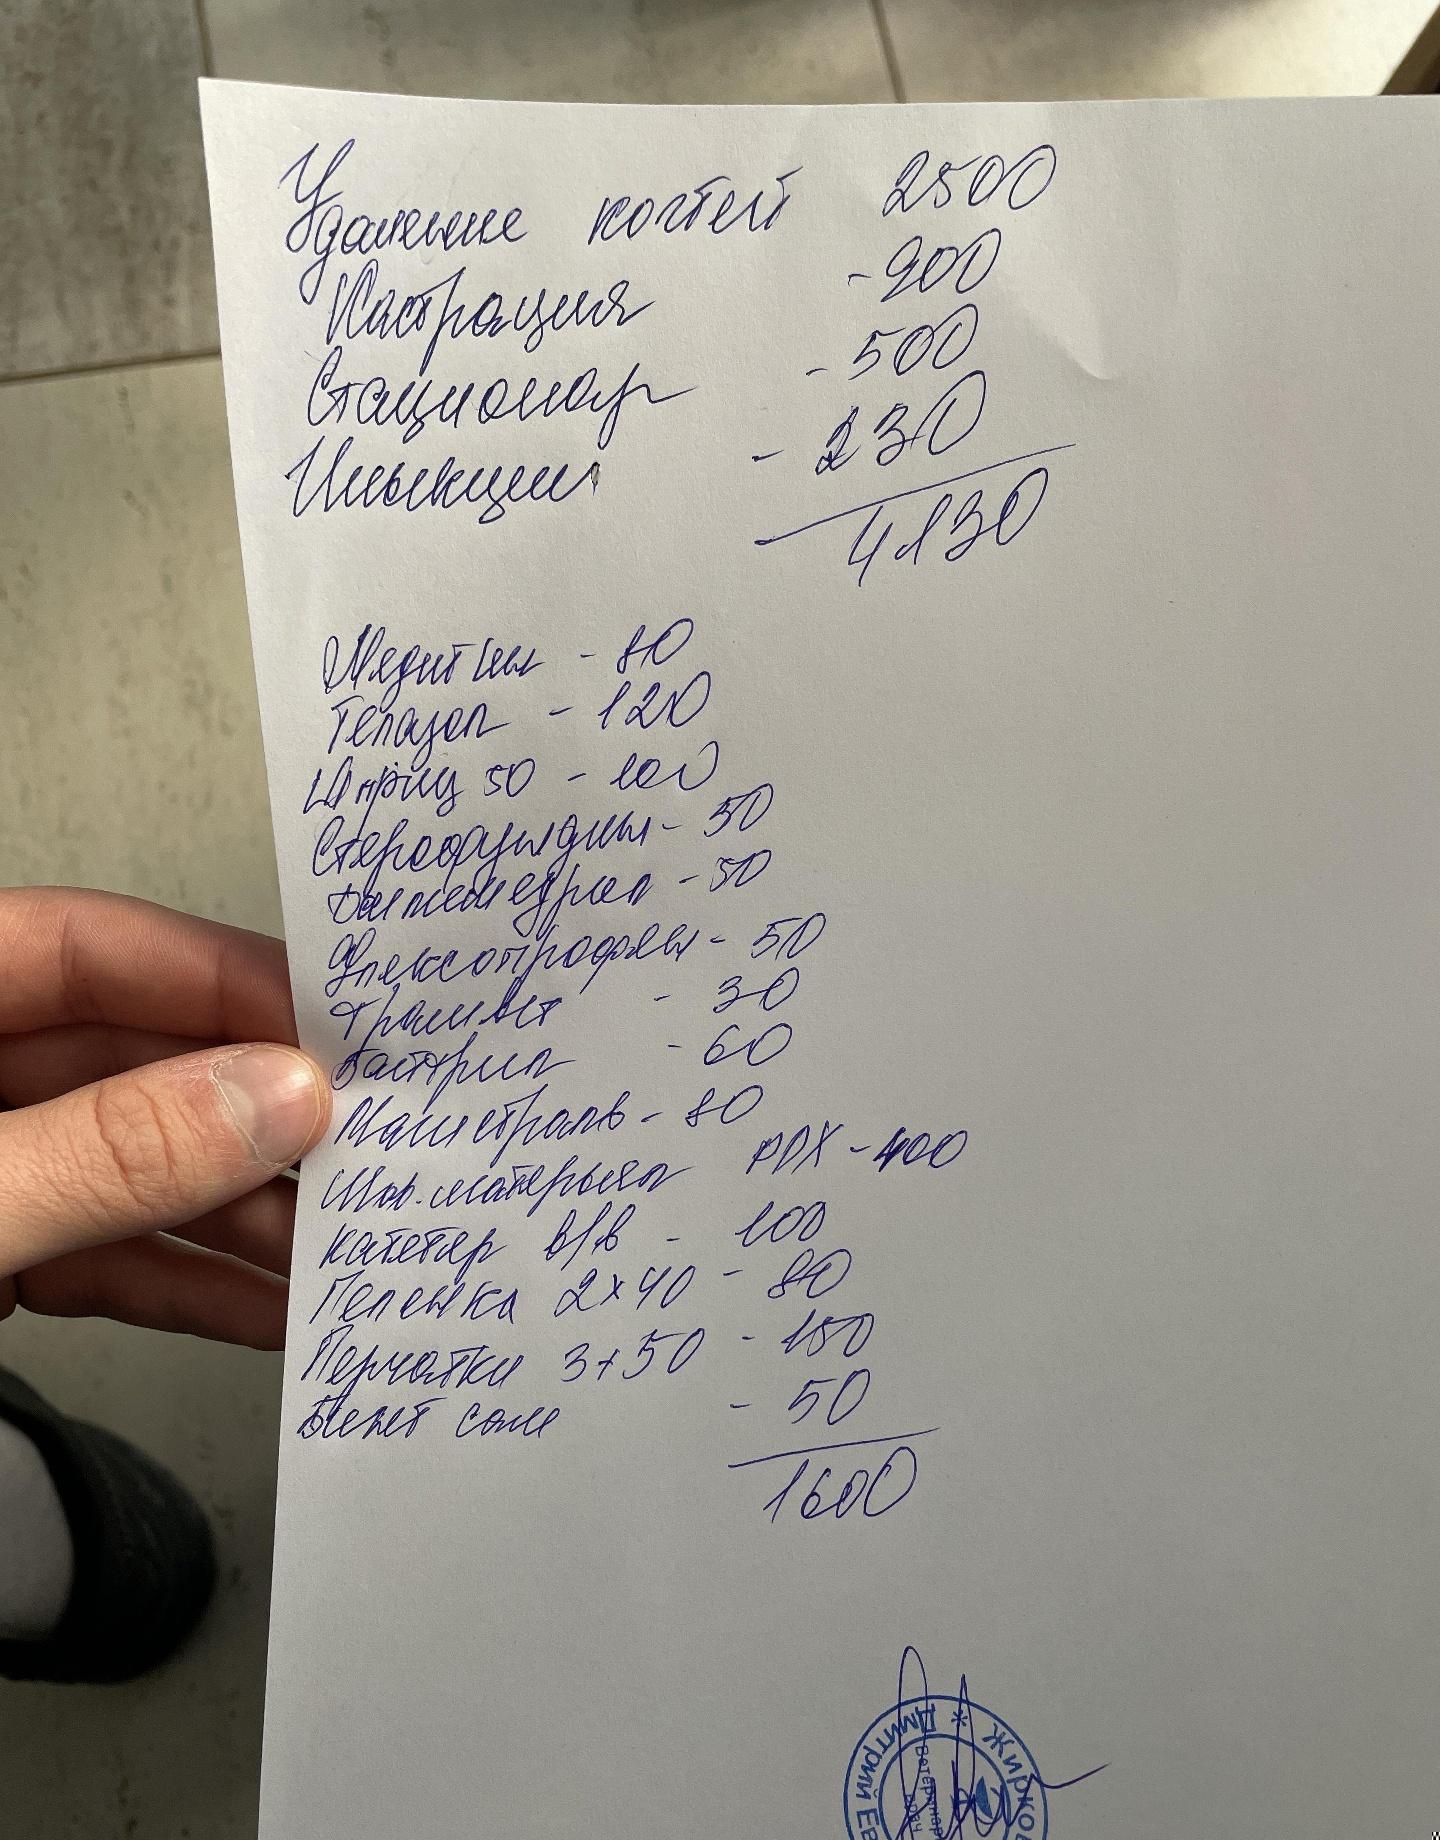 Удаление когтей 2500
Кастрация - 900
Стационар - 500
Иньекции - 230
- 4130
Медитин - 80
Телазол - 120
Шприц 50 - 100
Стерофундин - 50
Димедрол - 50
Флексопрофен - 50
Трамвет - 30
Байтрил - 60
Магистраль - 80
Шов. материял PDX - 400
Катетер в/в - 100
Пеленка 2х40 - 80
Перчатки 3х50 - 150
Бинт сам - 50
1600
* Жирков
Дмитрий Ев
Ветеринар
врач